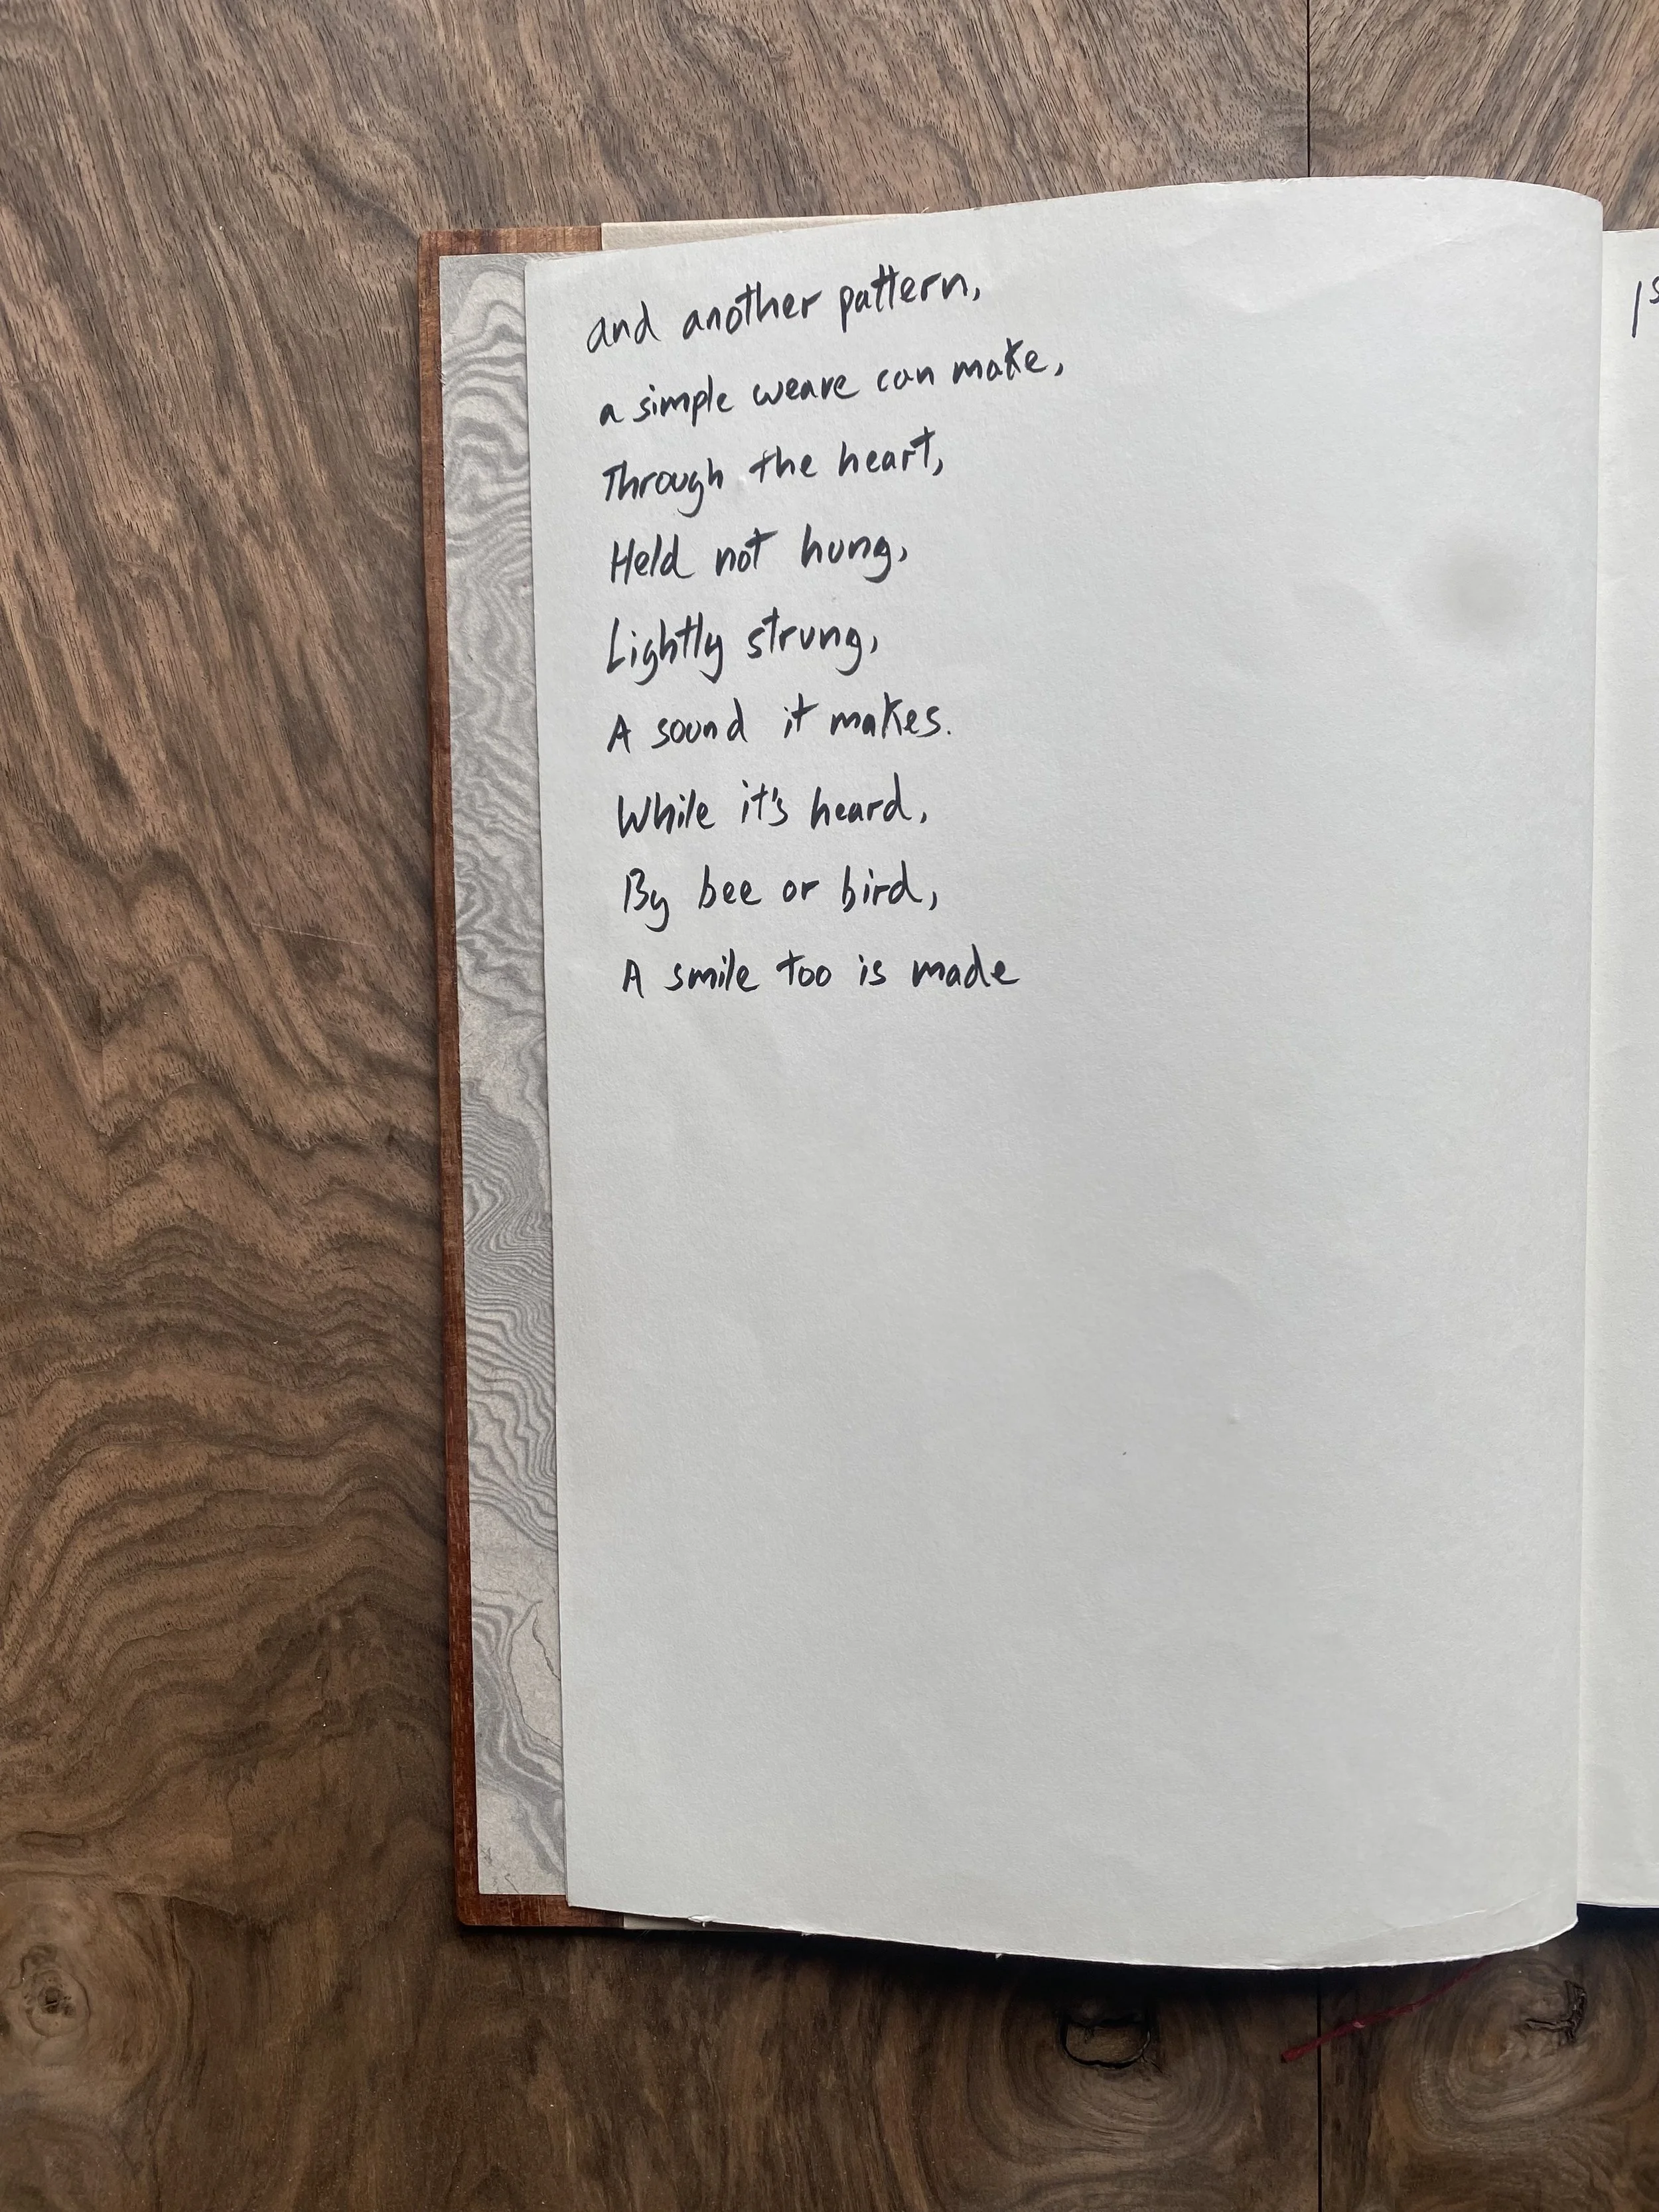 and another pattern,
a simple weave can make,
Through the heart,
Held not hung,
Lightly strung,
A sound it makes.
While it's heard,
By bee or bird,
A smile too is made